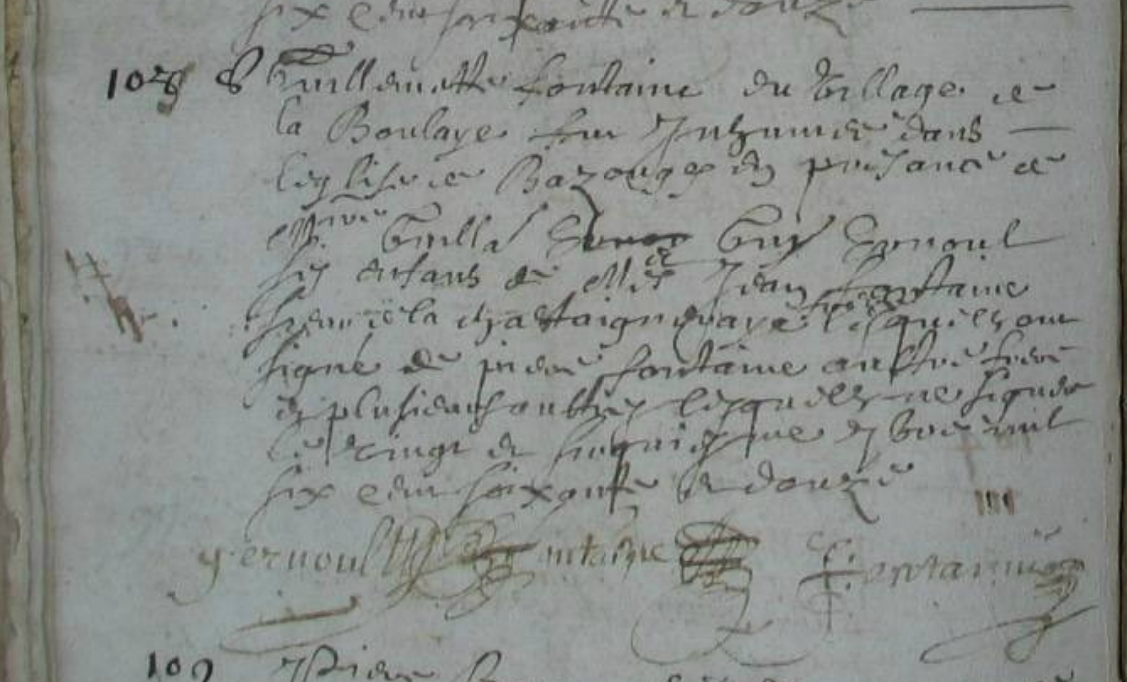 six cent soixante et douze
108 S Guillemette fontaine du village de
la Boulaye fut Inhumée dans
leglise de Bazouges en presance de
Guill Guy Ernoul
ses enfans de Mre Jean fontaine
sieur de la chataigneraye lesquels ont
signé de pierre fontaine aultre frere
et plusieurs aultres lesquels ne signent
le vingt et cinquiesme octobre mil
six cent soixante et douze
g ernoul fontaine fontaine
109 Pierre